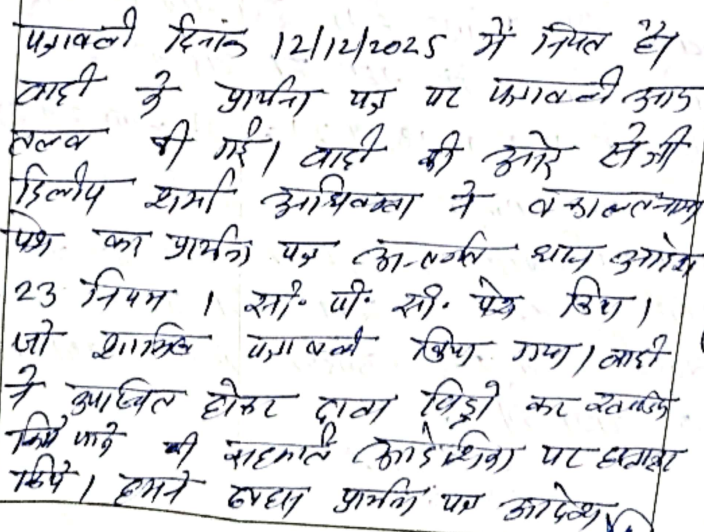 पत्रावली दिनांक 12/12/2025 में नियत है।
वादी के प्रार्थना पत्र पर पत्रावली आज
तलब की गई। वादी की ओर से श्री
दिलीप शर्मा अधिवक्ता ने वकालतनामा
पेश कर प्रार्थना पत्र अन्तर्गत धारा आदेश
23 नियम 1 सी. पी. सी. पेश किया।
जो शामिल पत्रावली किया गया। वादी
ने उपस्थित होकर दावा विड्रो कर
किये जाने की सहमति आदेशिका पर हस्ताक्षर
किये। हमने प्रार्थना पत्र आदेश